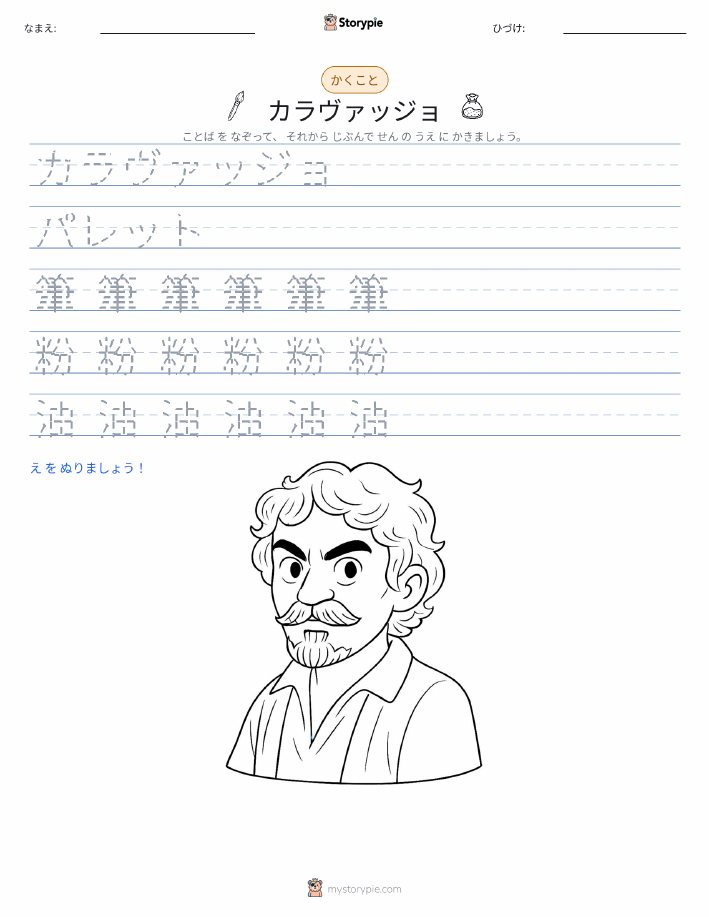 なまえ:
Storypie
ひづけ:
かくこと
カラヴァッジョ
ことば を なぞって、 それから じぶんで せん の うえ に かきましょう。
カラヴァッジョ
パレット
筆 筆 筆 筆 筆 筆
粉 粉 粉 粉 粉 粉
油 油 油 油 油 油
え を ぬりましょう！
mystorypie.com